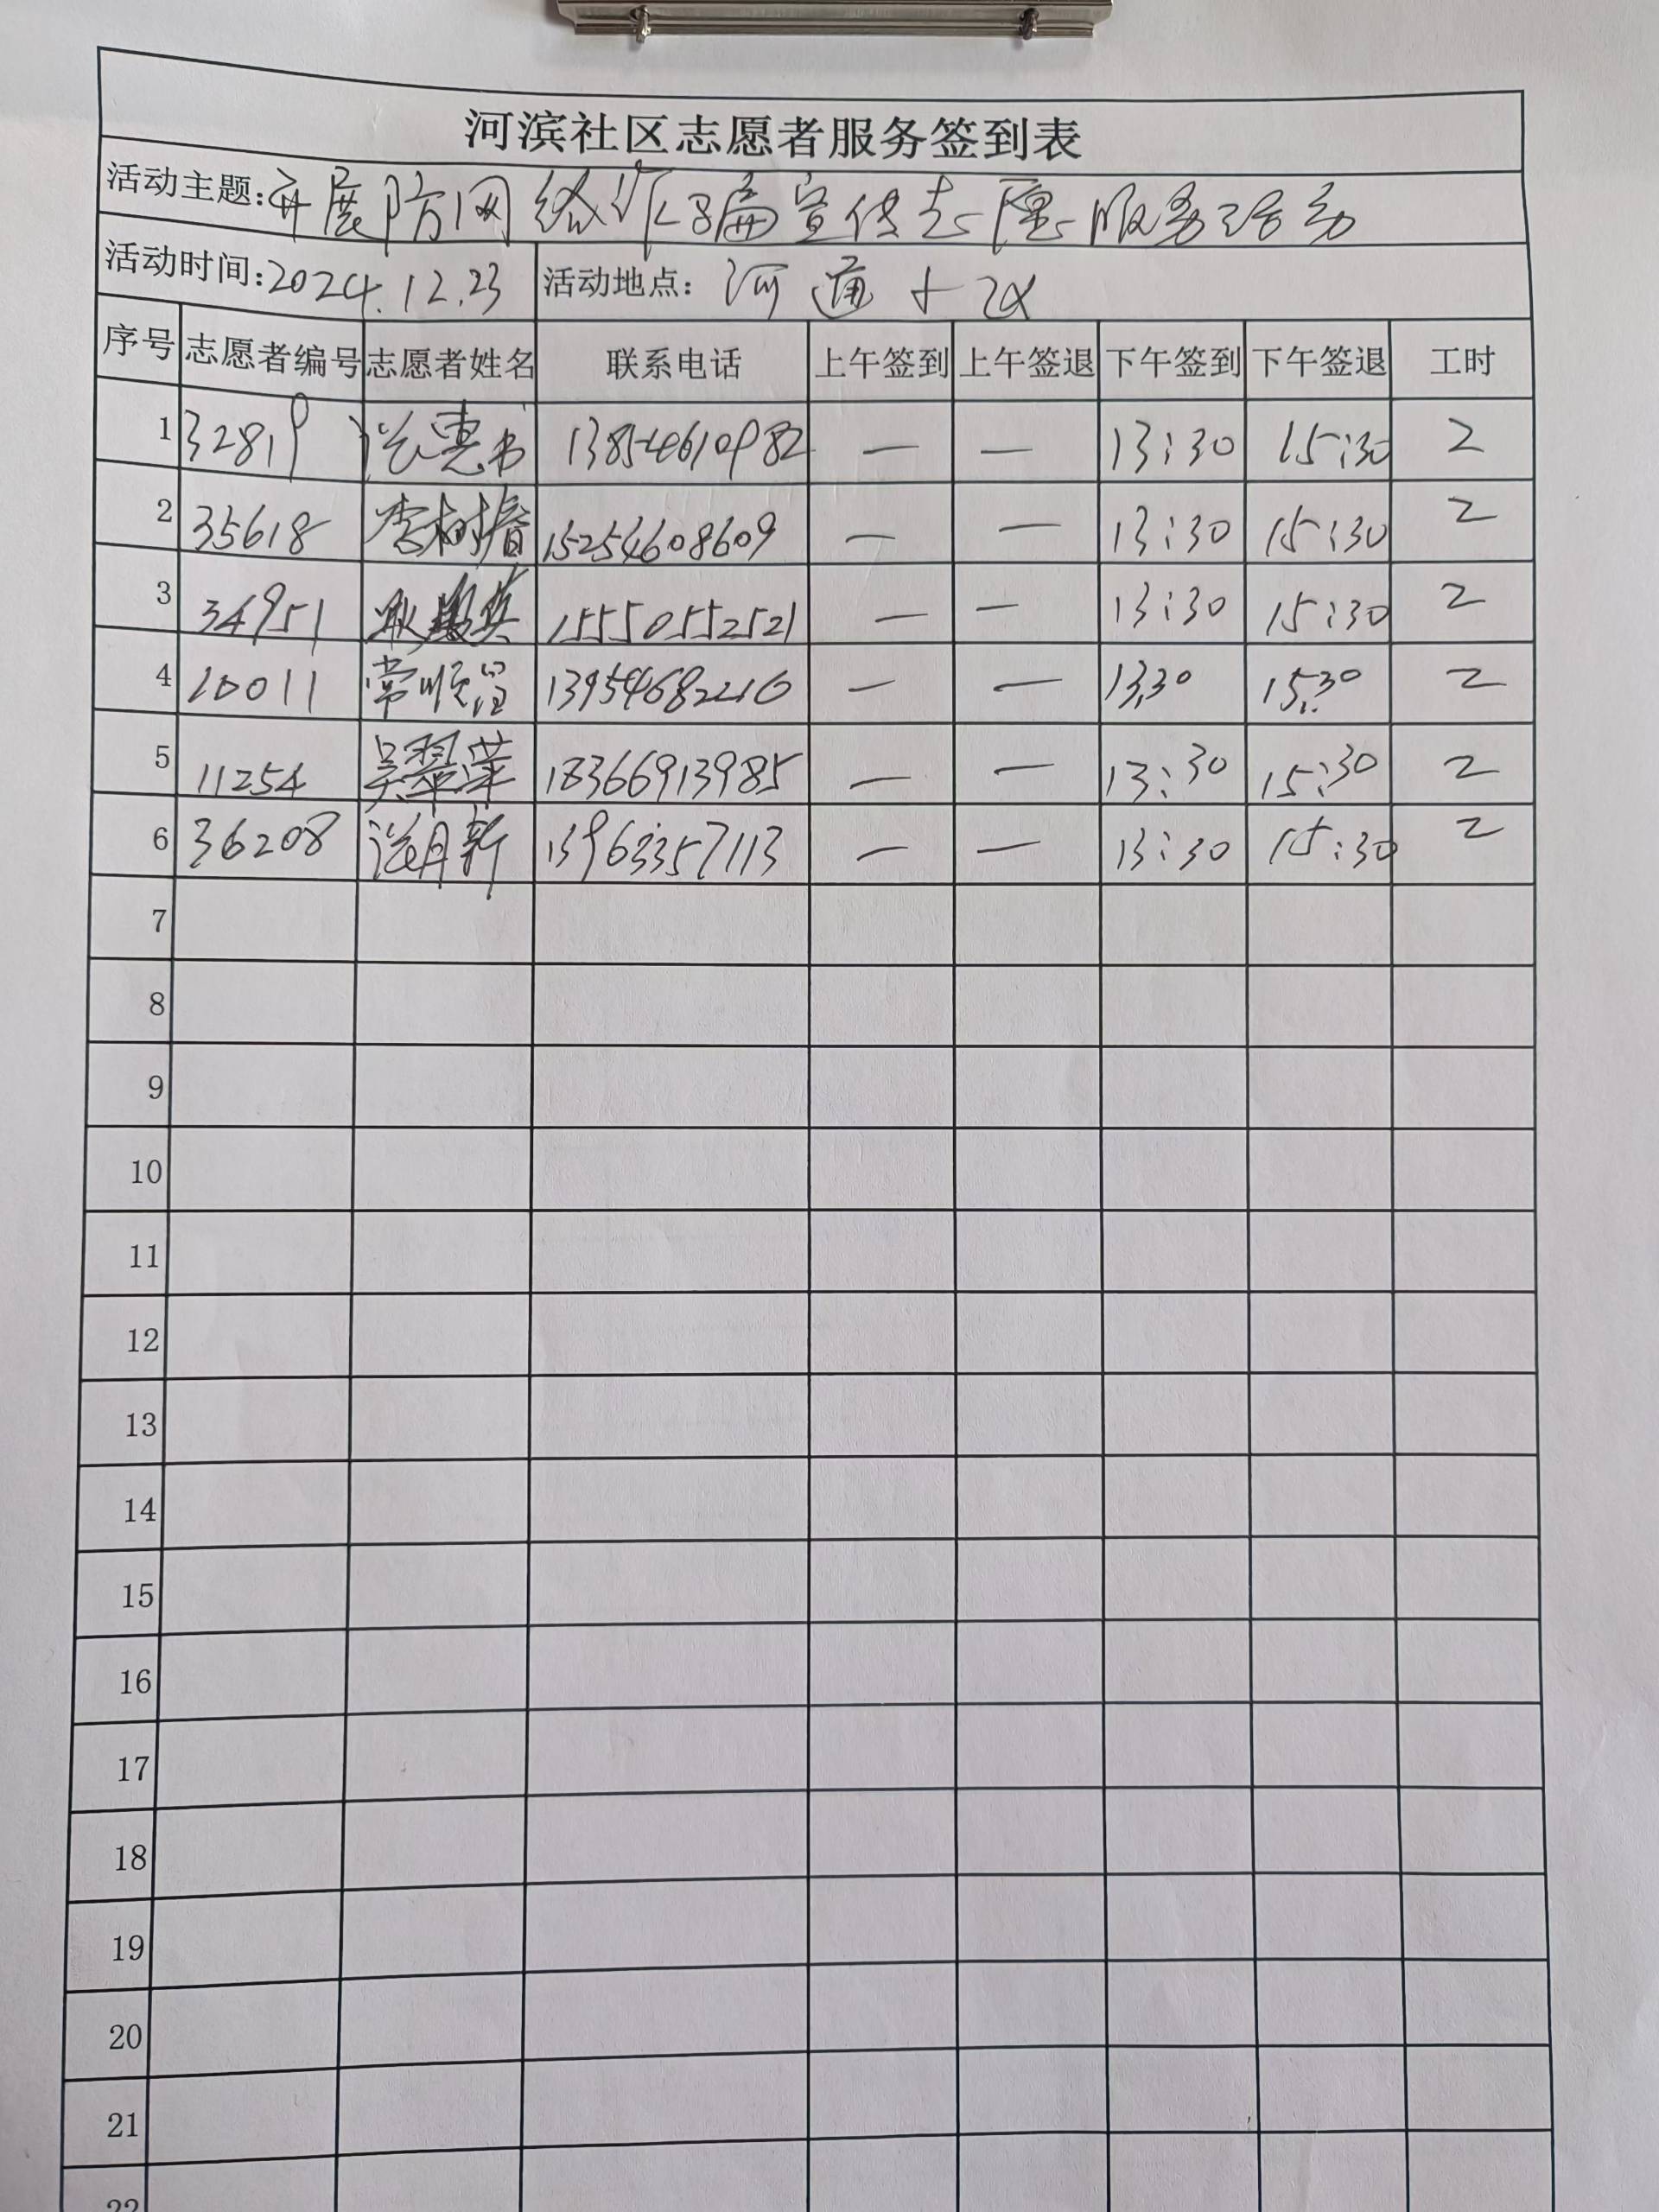 河滨社区志愿者服务签到表
活动主题:开展防网络诈骗宣传志愿服务活动
活动时间:2024.12.23 活动地点: 河通小区
序号 志愿者编号 志愿者姓名 联系电话 上午签到 上午签退 下午签到 下午签退 工时
1 32819 惠书 13854610982 — — 13:30 15:30 2
2 35618 李树 15254608609 — — 13:30 15:30 2
3 34951 耿 英 15550552521 — — 13:30 15:30 2
4 10011 常顺 13954682216 — — 13:30 15:30 2
5 11254 吴翠萍 18366913985 — — 13:30 15:30 2
6 36208 月新 13963357113 — — 13:30 15:30 2
7
8
9
10
11
12
13
14
15
16
17
18
19
20
21
22